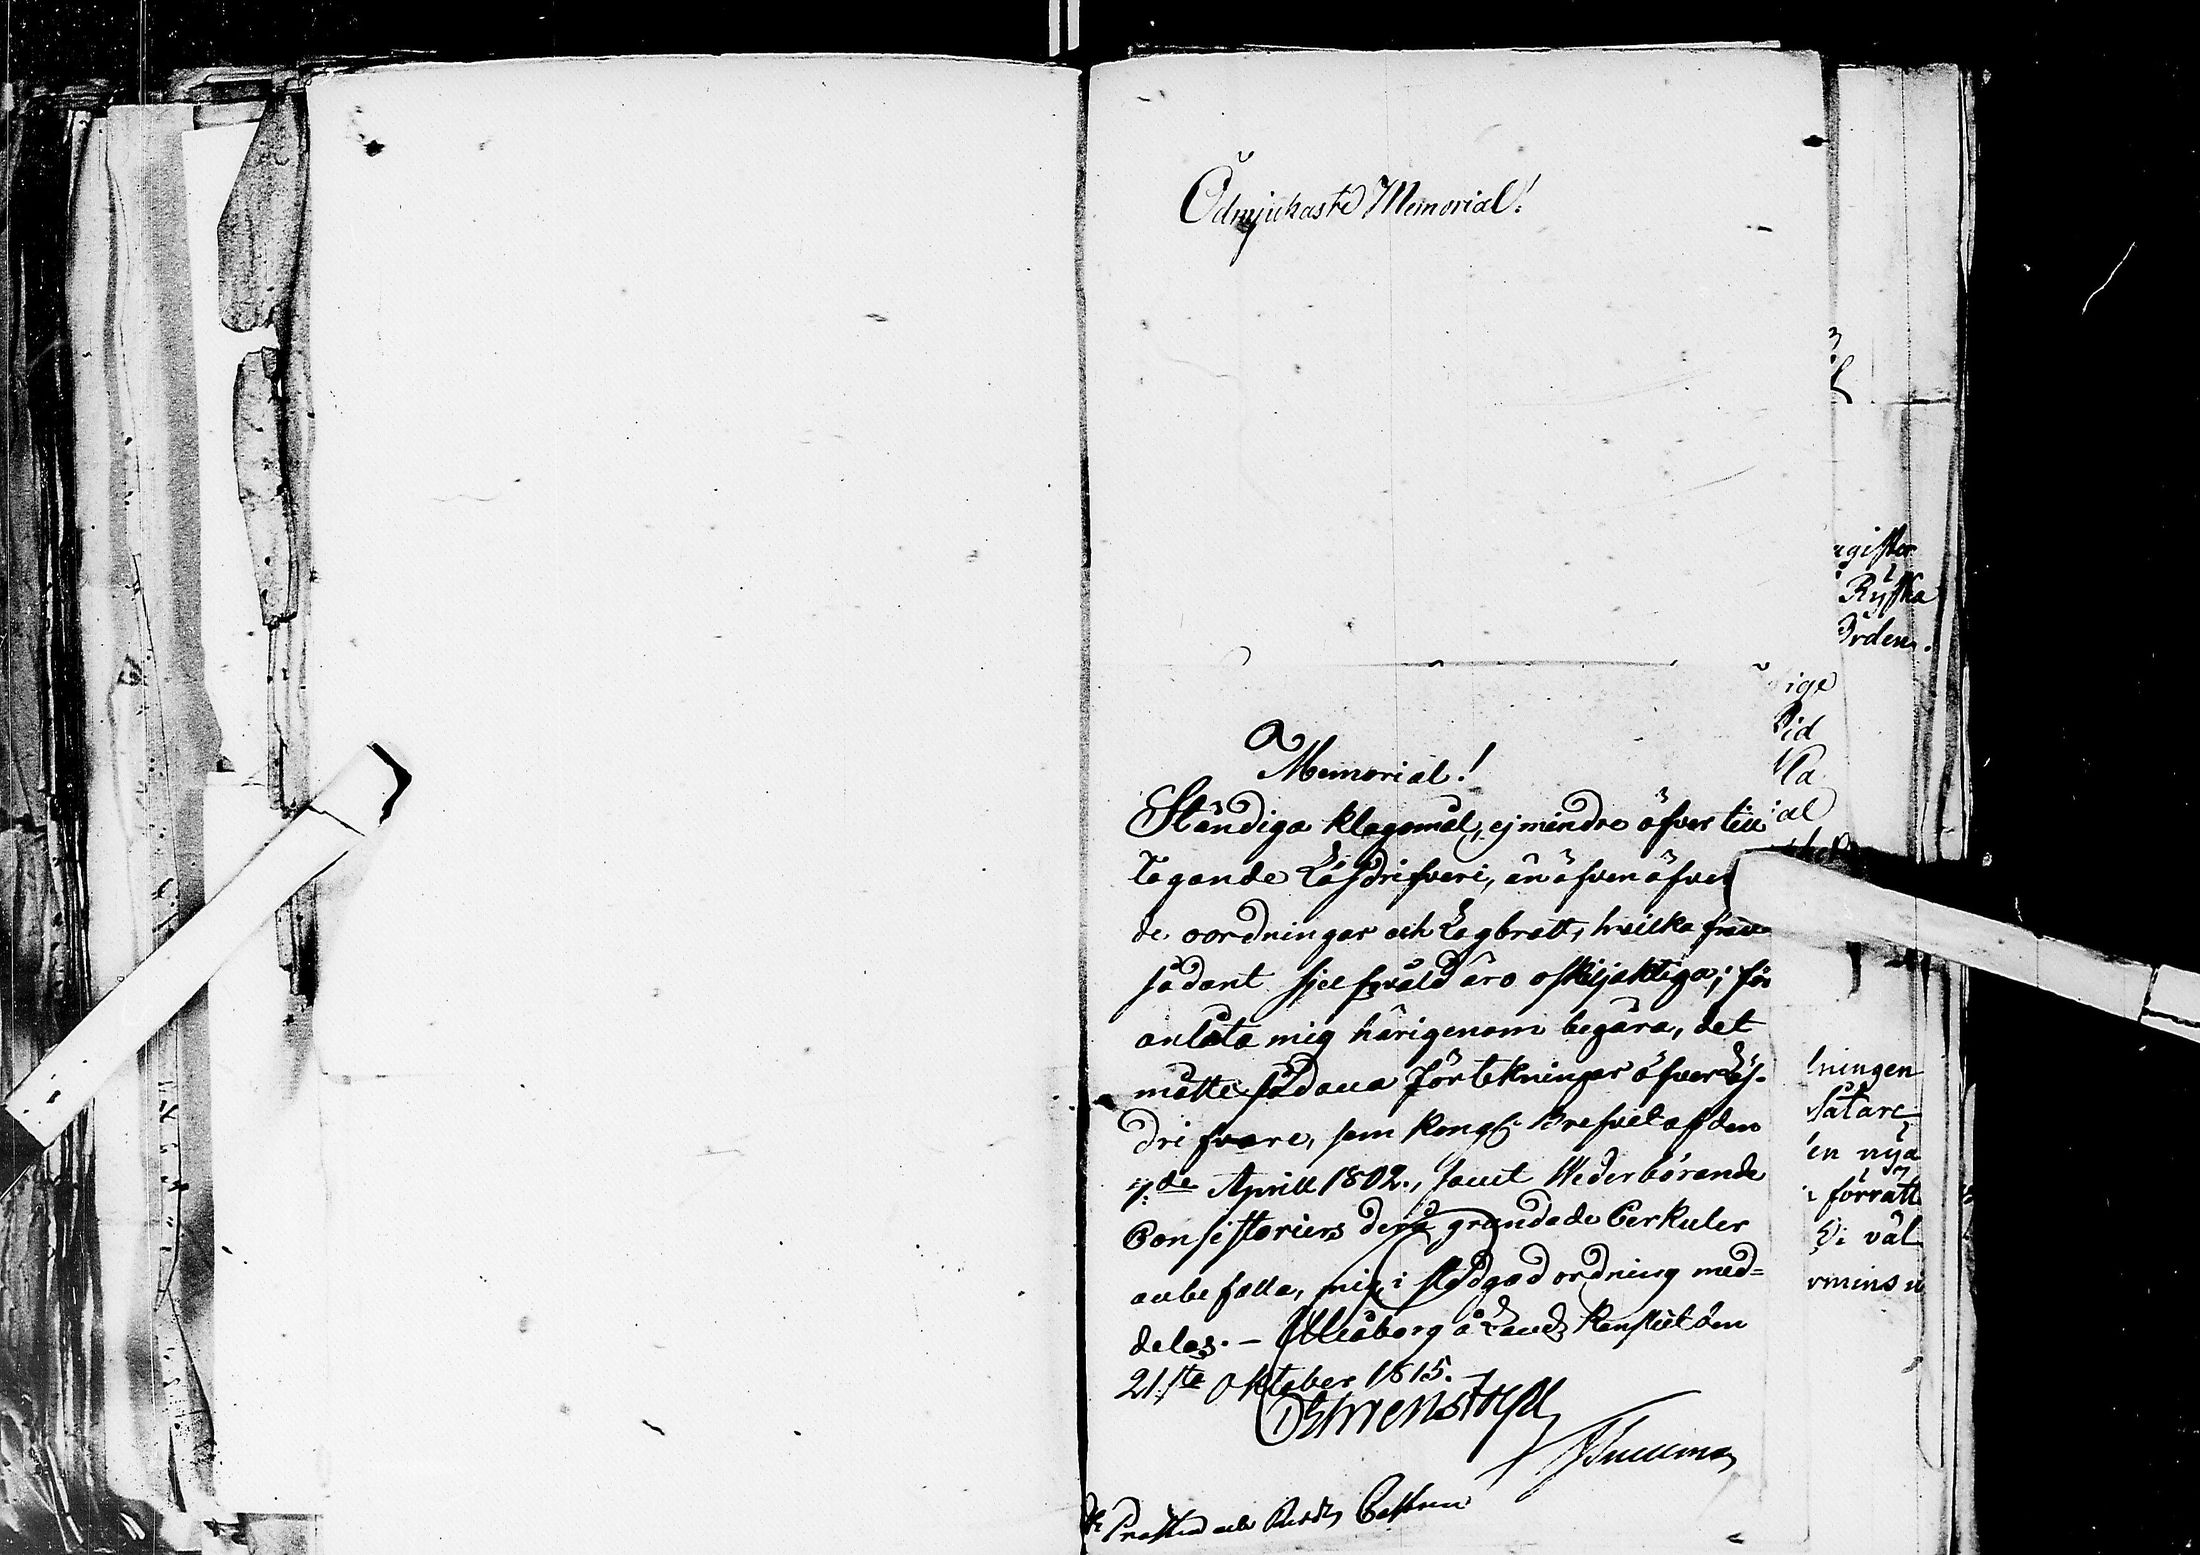 Ödmjukaste Memorial!
Memorial!
Ständiga klagomål, ej mindre öfver till
tagande Lösdrifveri, än äfven öfver
de oordningar och Lagbrott, hvilka från
sådant sjelfsvåld äro oskiljaktiga; för
anlåta mig härigenom begära, det
måtte sådana Förtekningar öfver Lös-
drifvare, som Kongl. Brefvet af den
7:de Aprill 1802., samt Wederbörande
Consistoriers derå grundade Cerkuler
anbefalla, mig i stadgad ordning med=
delas. – Uleåborg å Lands Kansliet den
21:sta Oktober 1815.
Ehrenstolpe
Prosten och
agister
Ryska
Orden.
ige
id
la
al
lningen
såtare
en nya
förrätt
Di väl
rmins